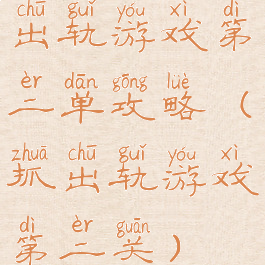 chū guǐ yóu xì dì
出轨游戏第
èr dān gōng lüè
二单攻略（
zhuā chū guǐ yóu xì
抓出轨游戏
dì èr guān
第二关）